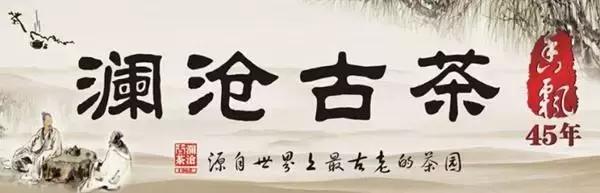 澜沧古茶
香飘
45年
澜沧古茶
源自世界上最古老的茶园